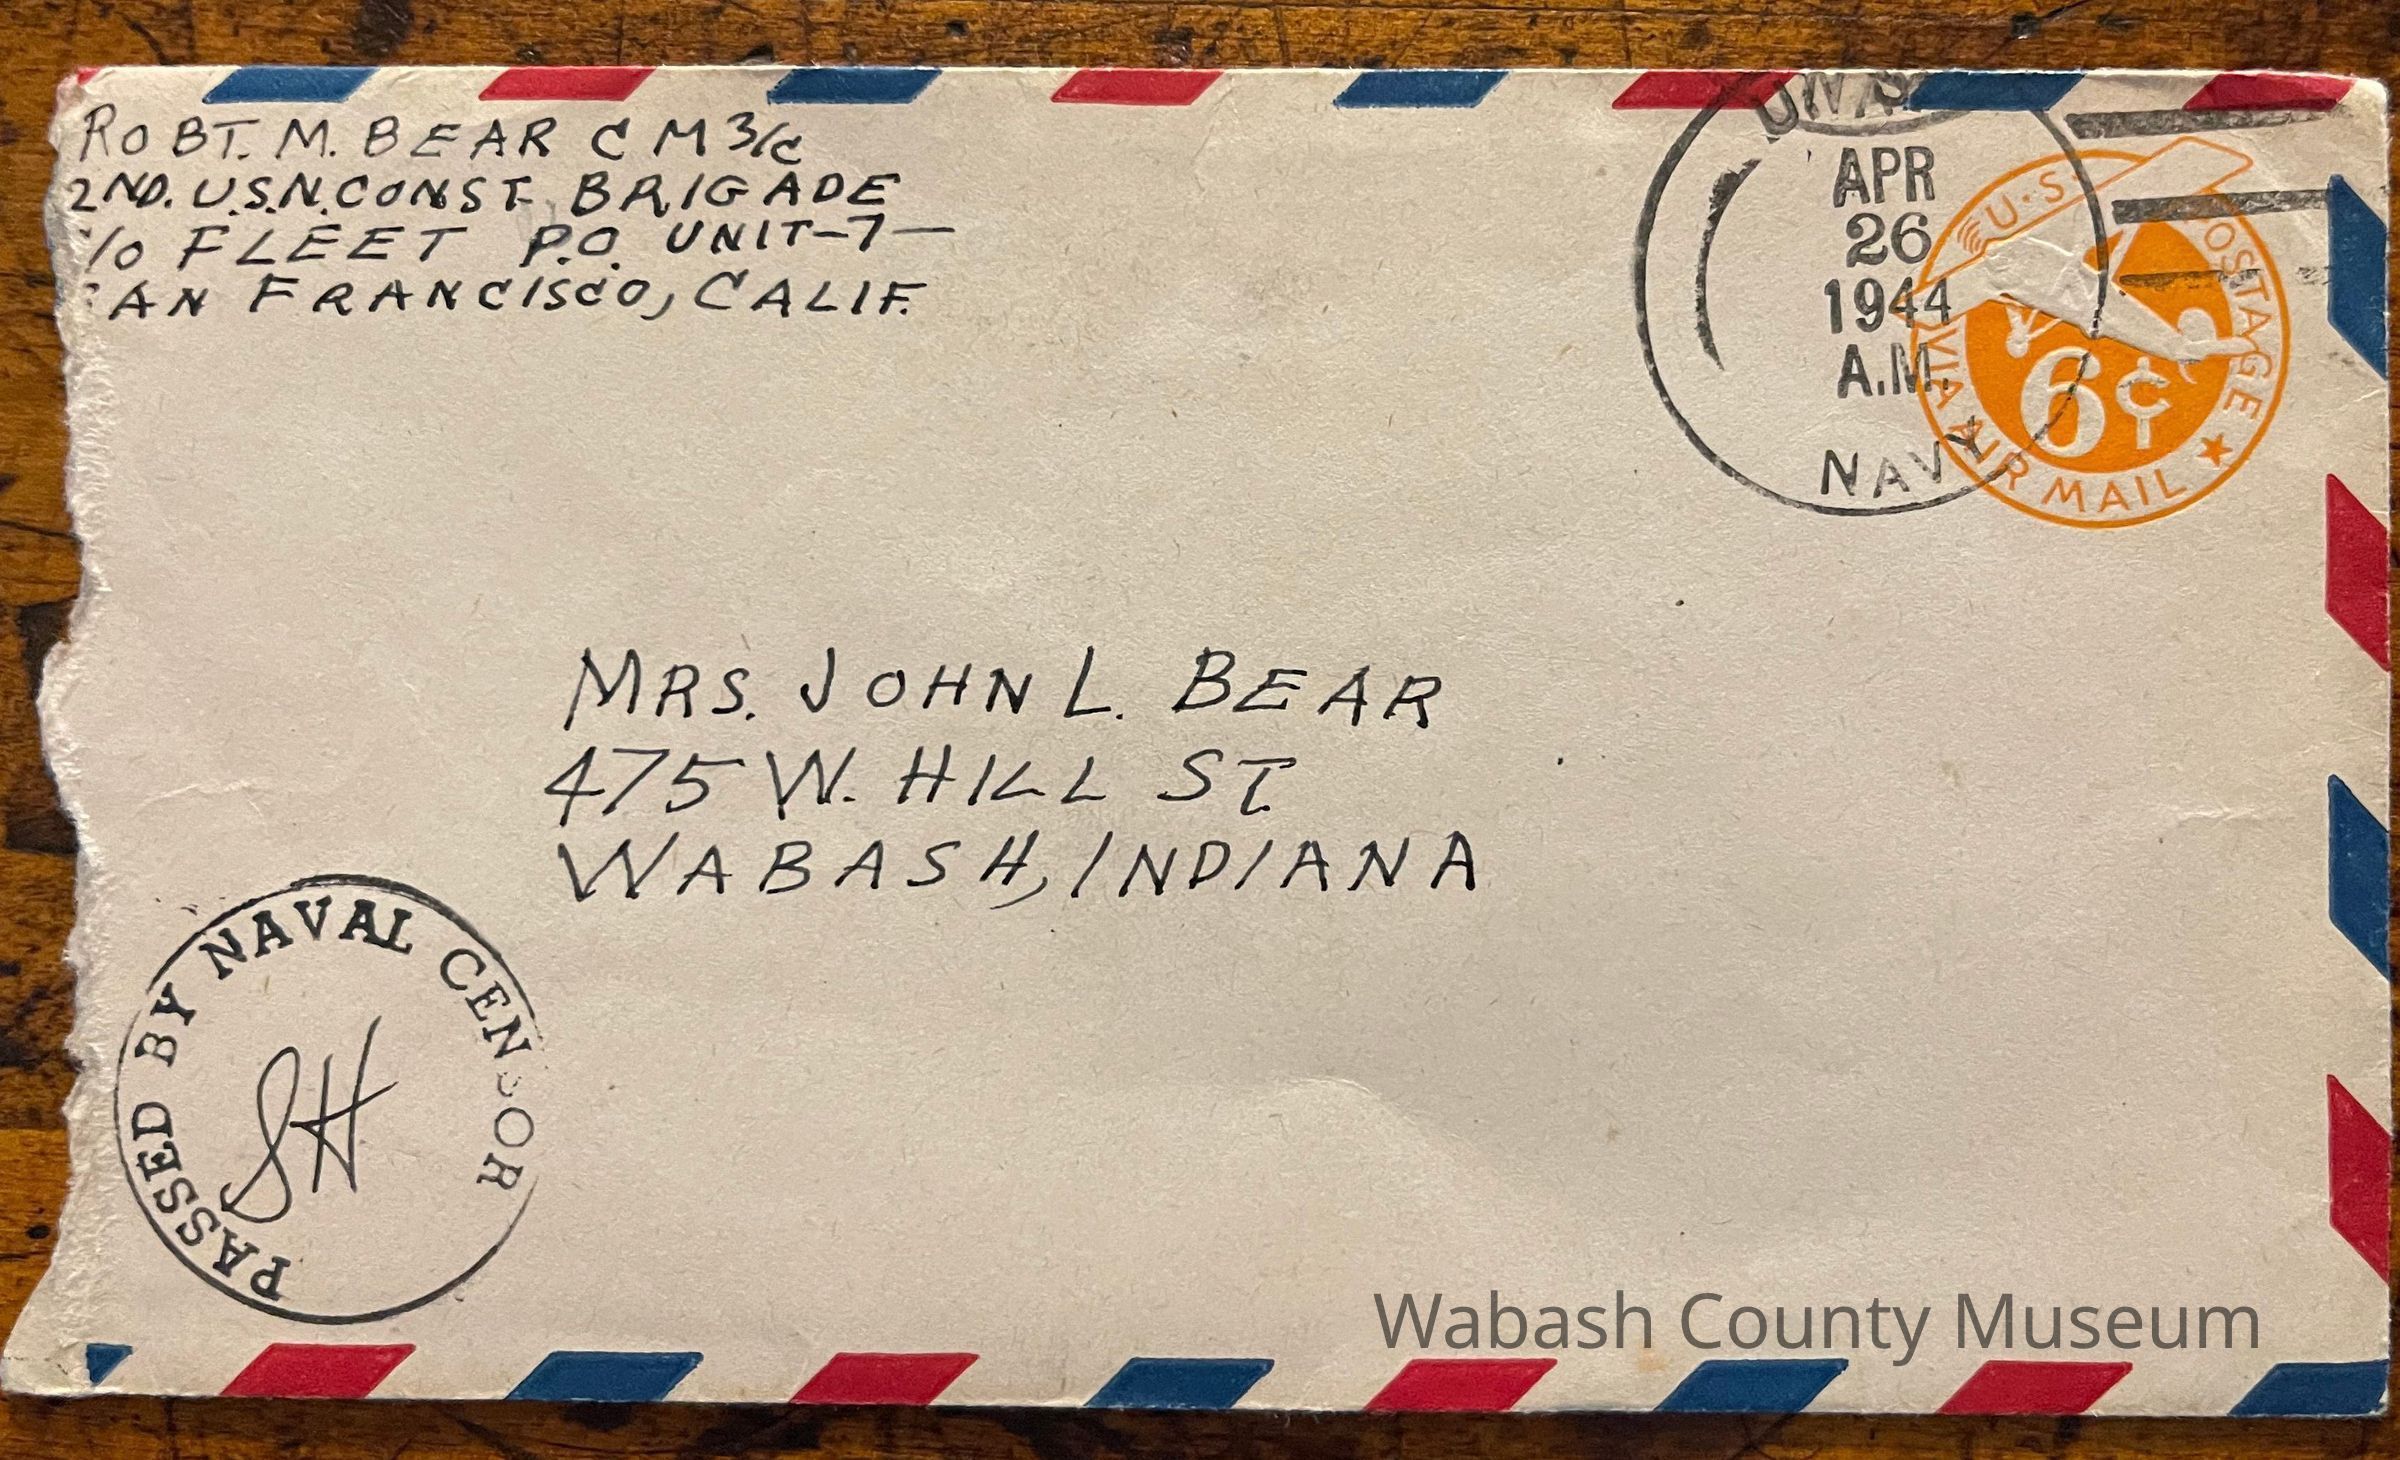 ROBT. M. BEAR CM 3/c
2ND. U.S.N. CONST. BRIGADE
c/o FLEET P.O. UNIT-7-
SAN FRANCISCO, CALIF.
APR
26
1944
A.M.
NAVY
U.S. POSTAGE
VIA AIR MAIL
6¢
MRS. JOHN L. BEAR
475 W. HILL ST.
WABASH, INDIANA
PASSED BY NAVAL CENSOR
SH
Wabash County Museum